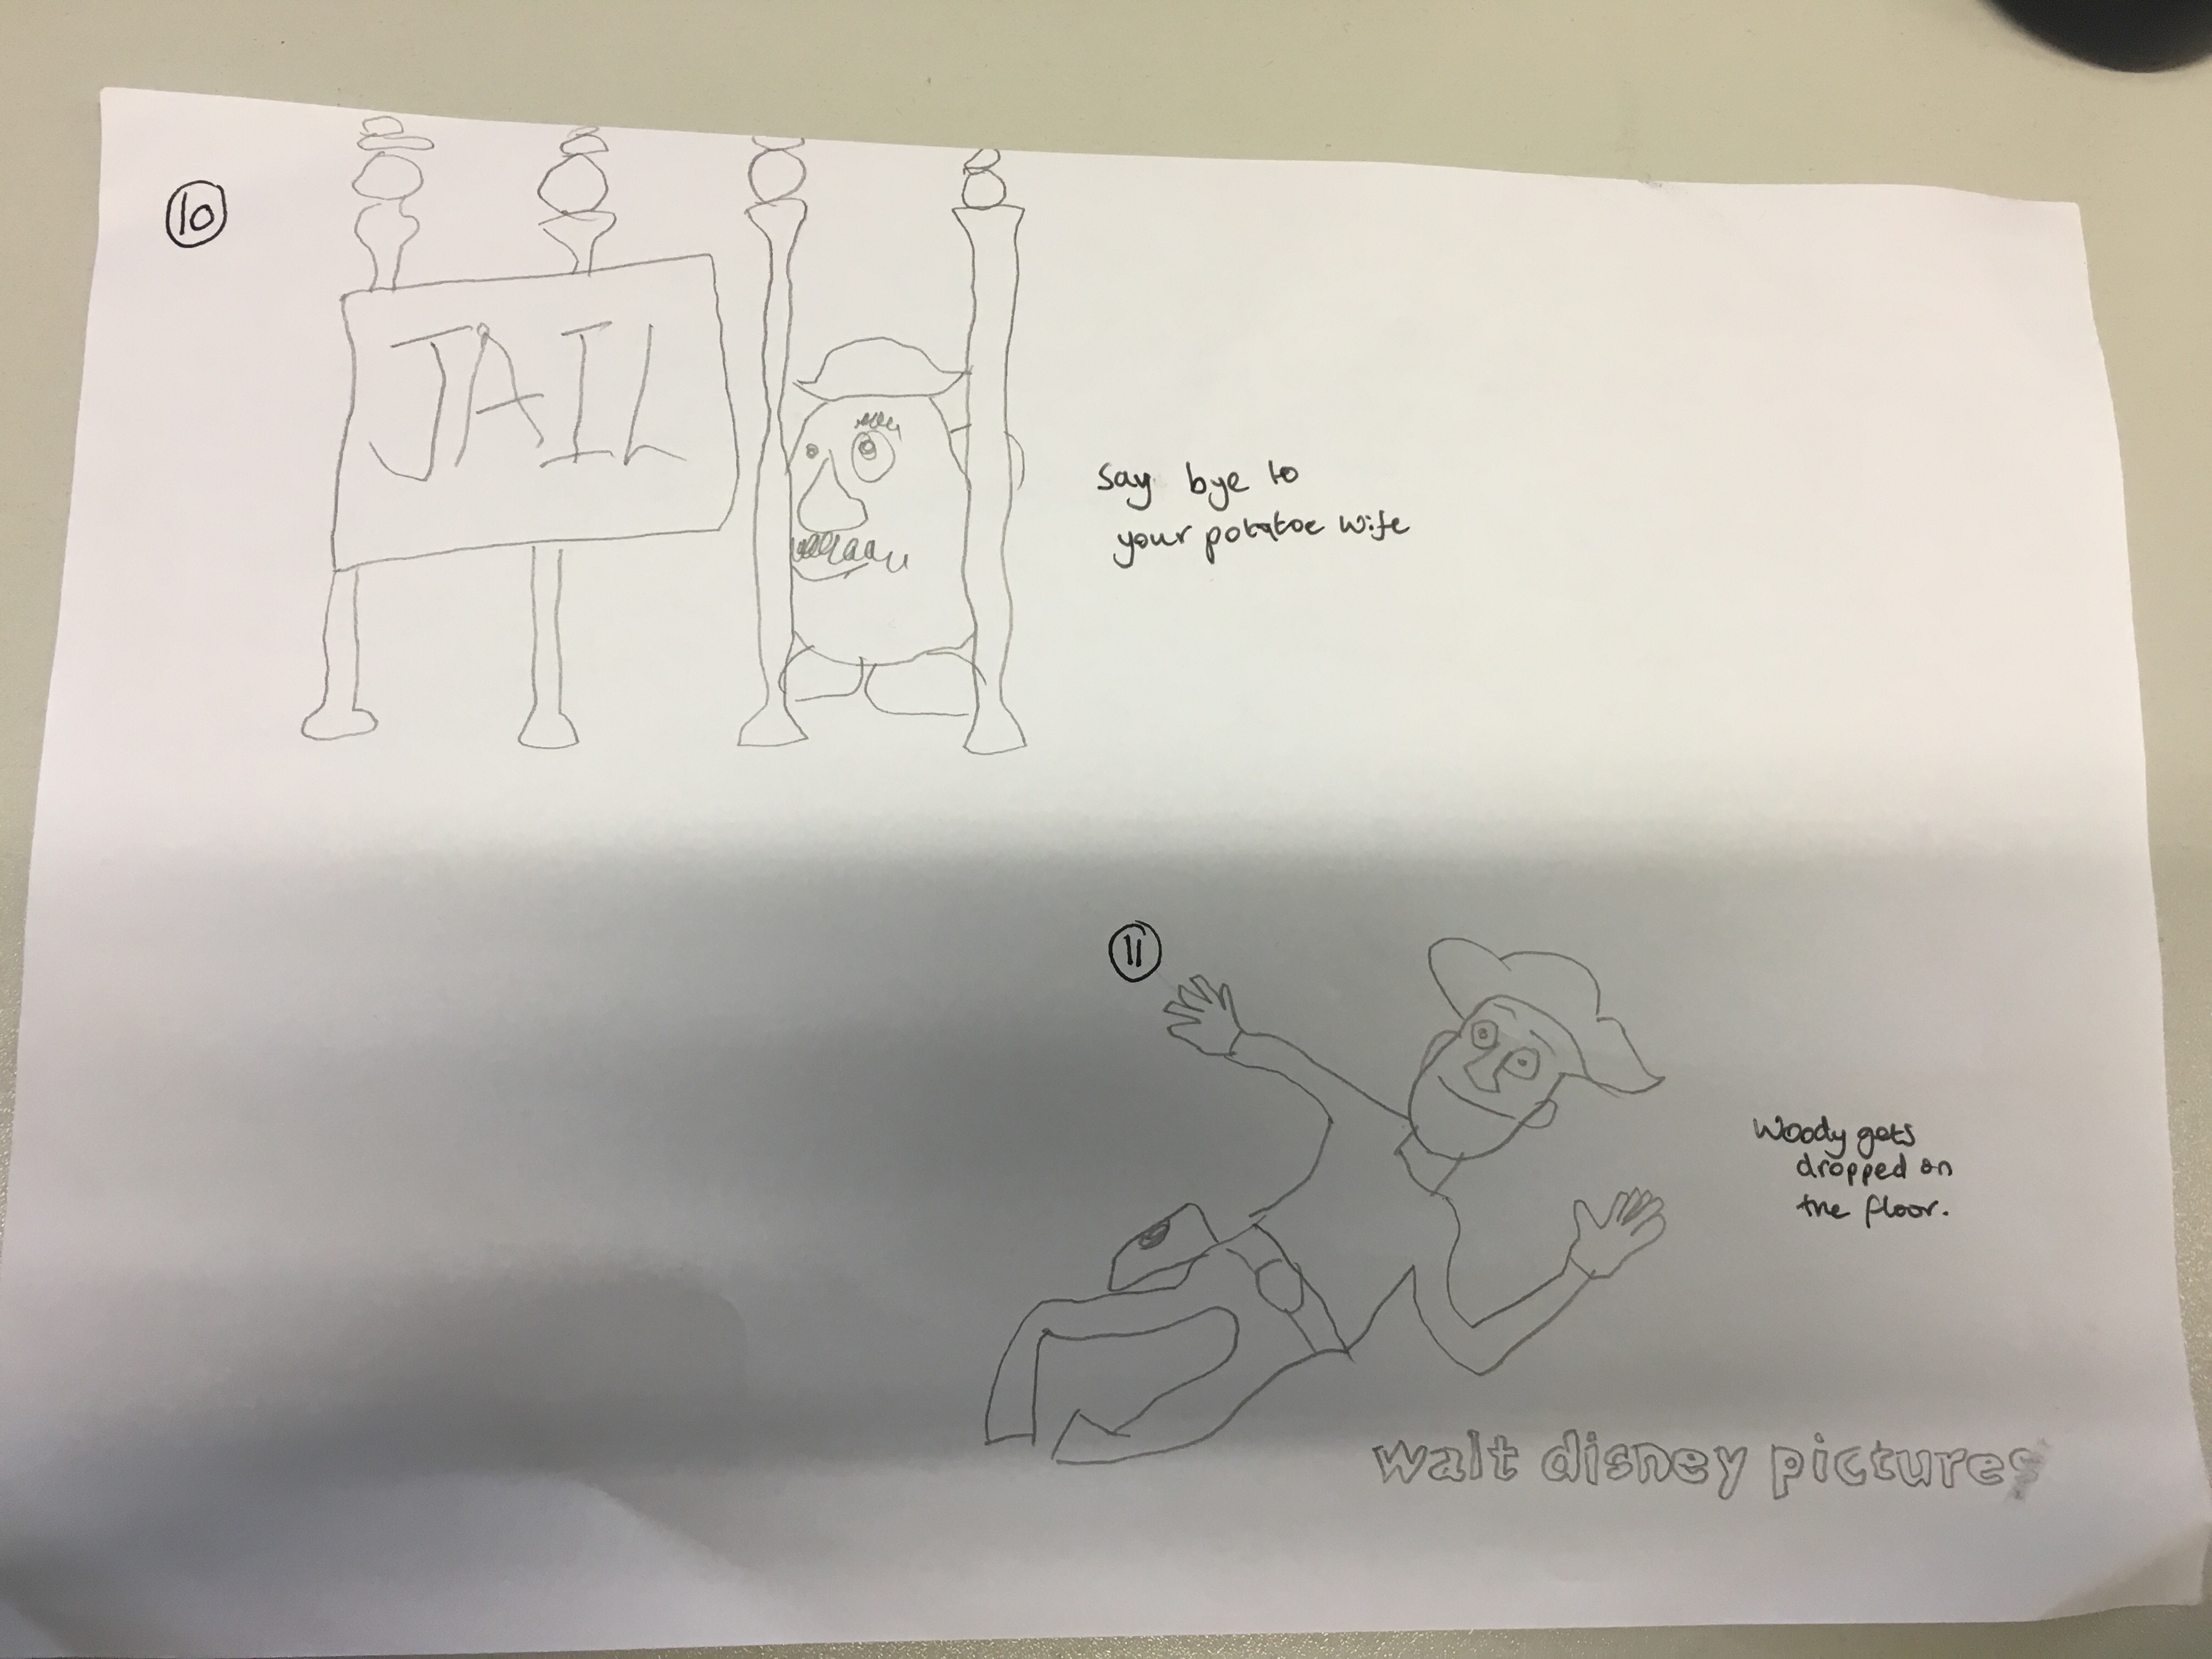 10
JAIL
Say bye to
your potatoe wife
11
Woody gets
dropped on
the floor.
walt disney pictures